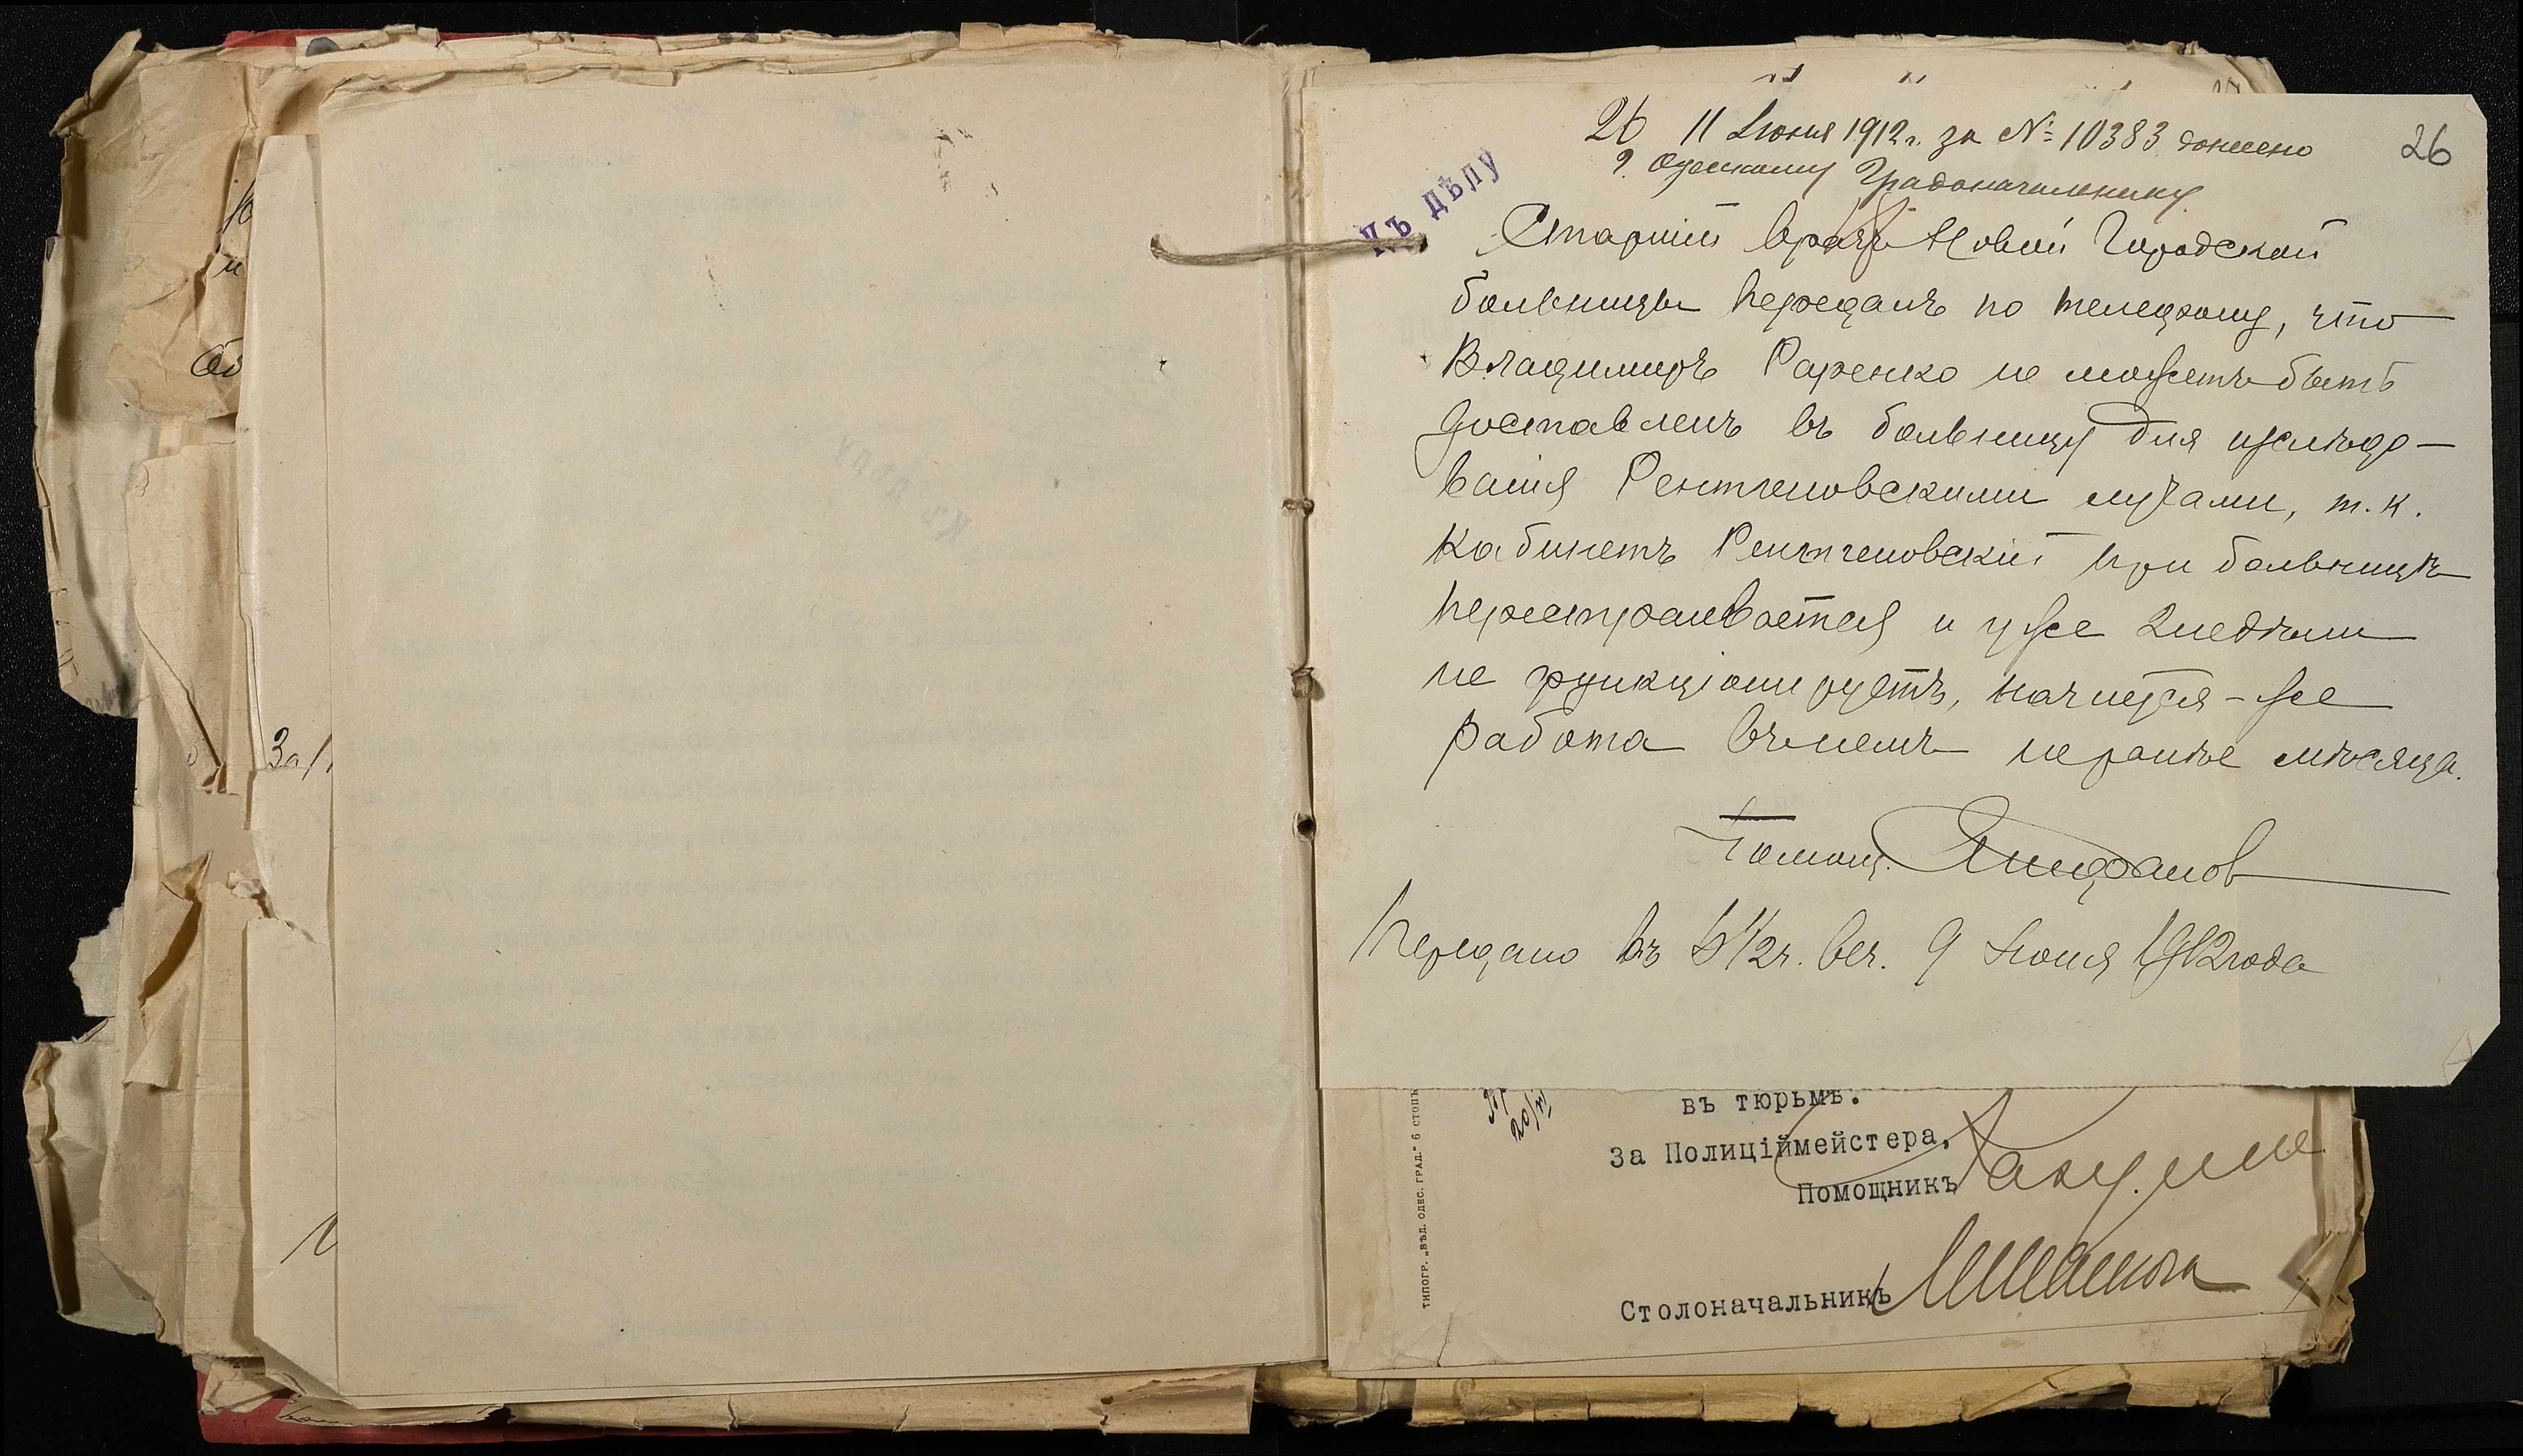 26 11 Июня 1912 г. за № 10383 донесено
26
г. Одесскому Градоначальнику
Къ дѣлу
Старшій врачъ Новой Городской
больницы передалъ по телефону, что
Владимиръ Раренко не можетъ быть
доставленъ въ больницу для изслѣдо-
ванія Рентгеновскими лучами, т. к.
Кабинетъ Рентгеновскій при больницѣ
перестраивается и уже 2 недѣли
не функціонируетъ, начнется-же
работа въ немъ не ранѣе мѣсяца.
Помощ.
Передано въ 6 1/2 ч. веч. 9 Июня 1912 года
въ тюрьмѣ.
За Полиціймейстера,
Помощникъ
Столоначальникъ
ТИПОГР. „ВѢД. ОДЕС. ГРАД.“ 6 стопъ
За